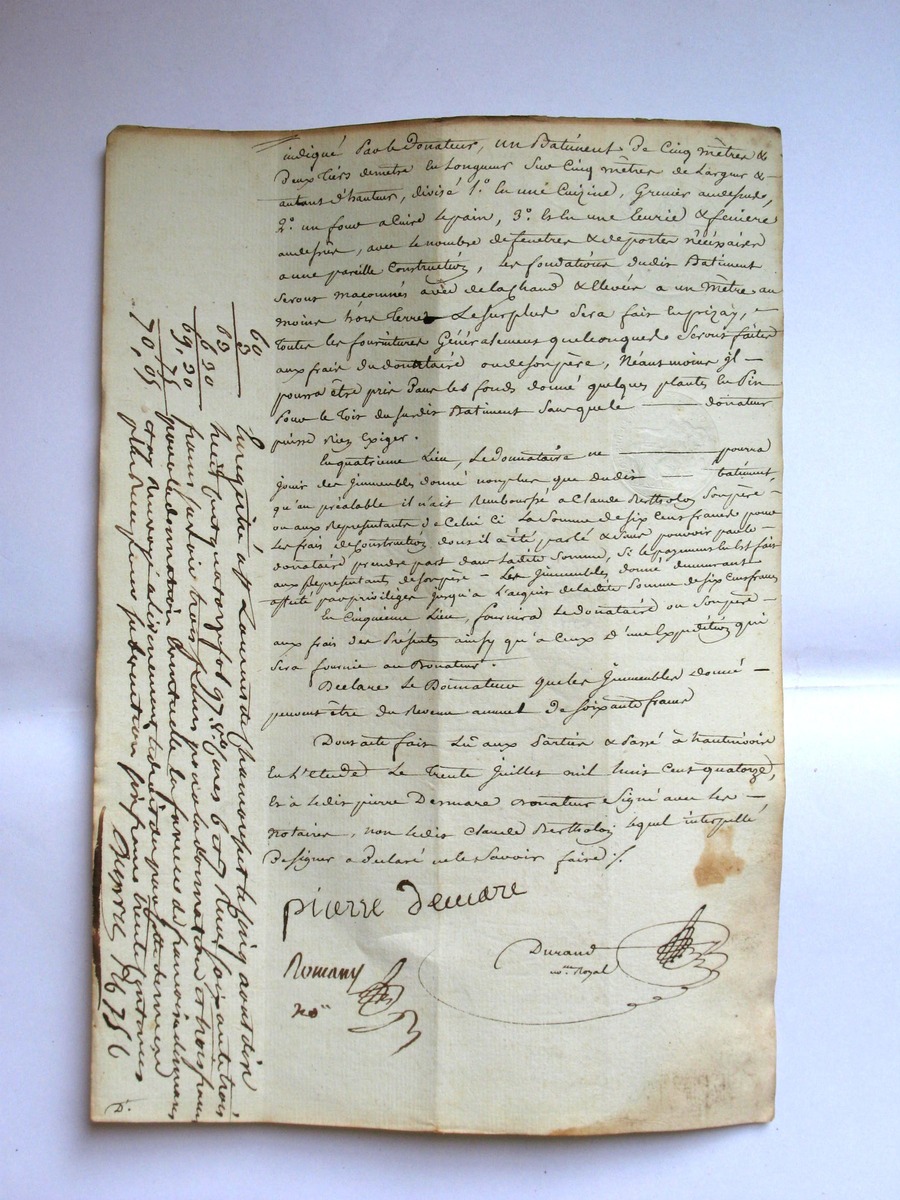 indiqué Par le Donateur, un Batiment De Cinq mètres &
Deux tiers demetre en Longueur Sur Cinq mètres de Largeur &
autant d'hauteur, divisé 1.º en une Cuizine, Grenier audessus,
2.º un four a Cuire le pain, 3.º Et en une Ecurie & feniere
audessus, avec le nombre de fenetres & de portes nécéssaires
a une pareille Construction, les fondations dudit Batiment
Seront maçonnés avec de la Chaud & Elevées a un Mètre au
moins hors Terre Le Surplus Sera fait en prizay,
Toutes les fournitures Généralement quelconques Seront faites
aux frais du donataire ou de son père, Néantmoins Jl
pourra être pris Dans les fonds donné quelques plantes en Pin
Pour le Toit du Susdit Batiment Sans que le donateur
puisse Rien Exiger.
En quatrieme Lieu, Le Donnataire ne pourra
Jouir des Jmmeubles donné non plus que dudit batiment,
qu'au préalable il n'ait Remboursé a Claude Bertholon Son père
ou aux Representants de Celui Ci La Somme de Six Cens francs pour
Les frais de Construction dont il a été parlé & Sans pouvoir par le
donataire prendre part dans ladite Somme, Si le payement En Est fait
aux Representants de Son père - Les Jmmeubles donné demeurant
affecté par privilége Jusqu'a L'acquit de ladite Somme de Six Cens francs
En Cinquieme Lieu, fournira Le donataire ou Son père
aux frais des Présentes ainsy qu'a Ceux d'une Expédition qui
Sera fournie au Donateur.
Declare Le Donnateur que les Jmmeubles donné
peuvent être du Revenu annuel De Soixante francs
Dont acte fait Lu aux Parties & Passé à hautrivoire
En L'Etude Le Trente Juillet mil huit Cent quatorze,
Et à ledit pierre Demare Donateur Signé avec les
Notaires, non ledit Claude Bertholon lequel interpellé
De Signer a Declaré ne le Savoir faire ./.
pierre demare
Durand
no.re Royal
Romany
no.re
60
3
63
6 30
69, 30
75
70, 05
Enregistré à St Laurent de Chamousset le cinq août dix
huit cent quatorze fol 97 Rº Cases 6 et Reçu soixante trois
francs pour la donnation et trois francs
pour la donnation éventuelle en faveur de francois demare
D.